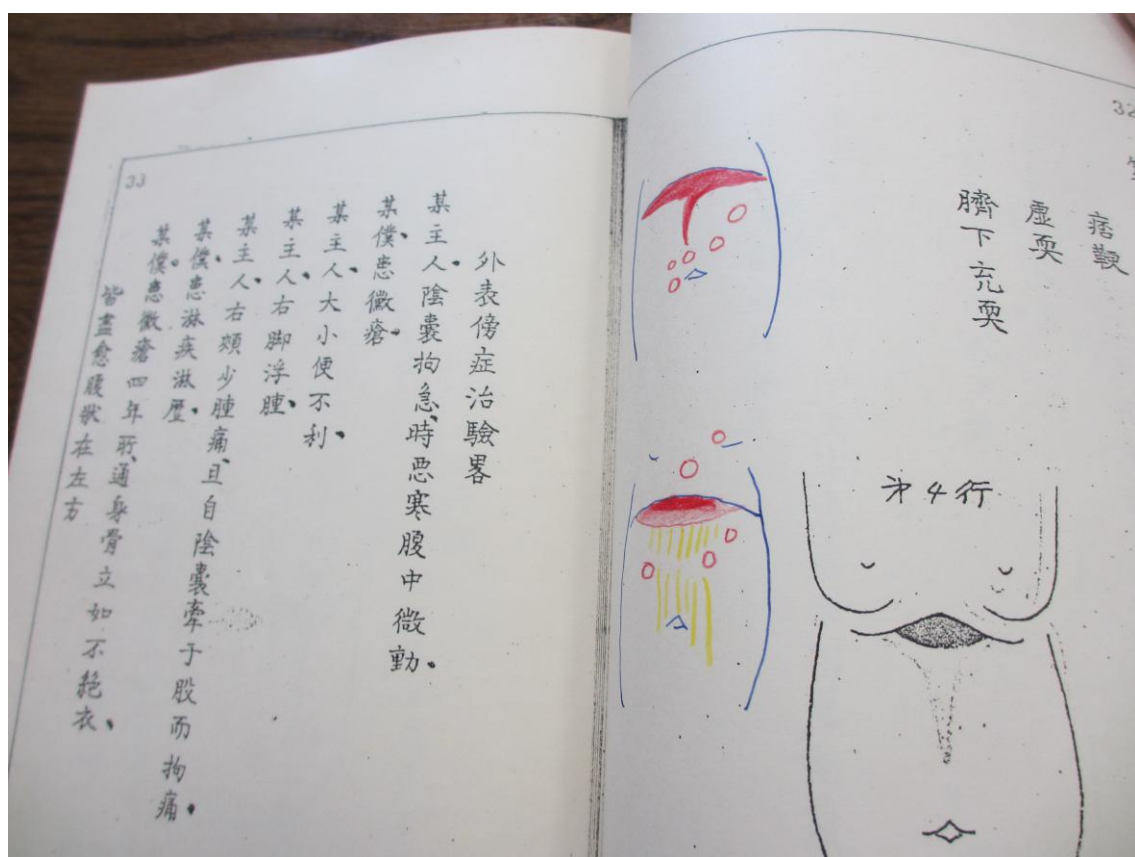 32
痞鞕
虚耎
臍下充耎
㐧4行
33
外表傍症治驗畧
某主人陰囊拘急、時悪寒腹中微動、
某僕患黴瘡、
某主人大小便不利、
某主人右脚浮腫、
某主人右頬少腫痛、且自陰囊牽于股而拘痛、
某僕患淋疾淋歴、
某僕患黴瘡四年所、通身骨立如不絶衣、
皆盡愈腹状在左方